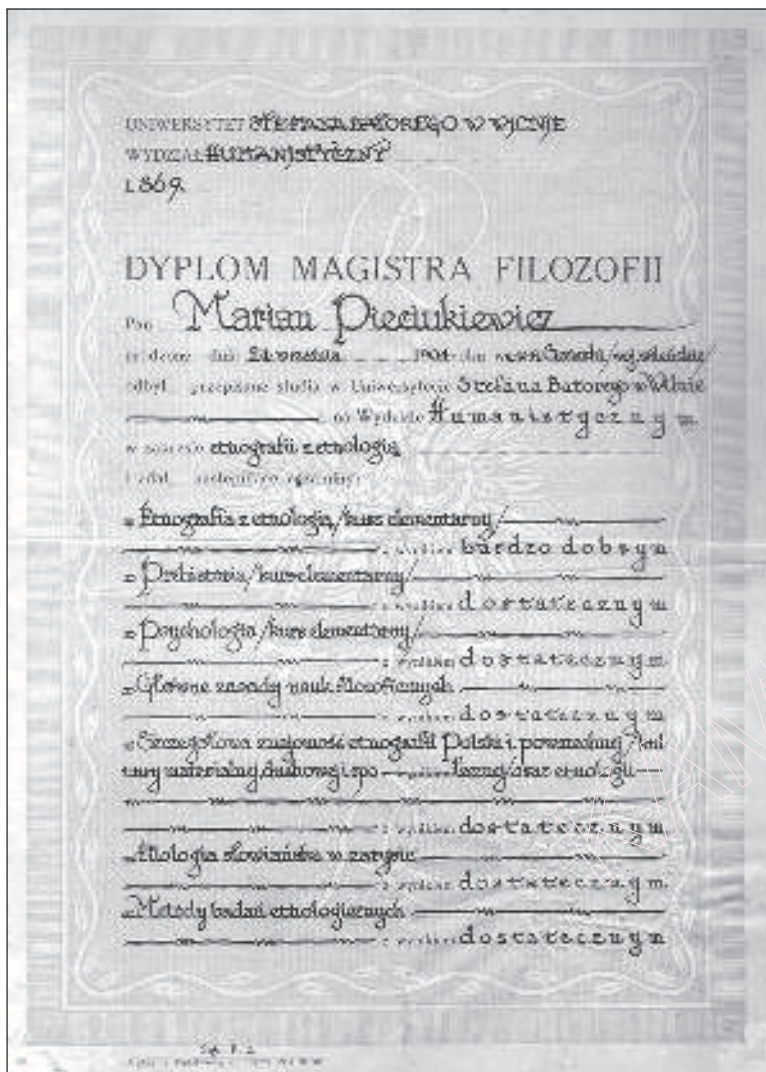 UNIWERSYTET STEFANA BATOREGO W WILNIE
WYDZIAŁ HUMANISTYCZNY
L 869.
DYPLOM MAGISTRA FILOZOFII
Pan Marian Pieciukiewicz
dnia 24 września 1904 roku
odbył przepisane studia w Uniwersytecie Stefana Batorego w Wilnie
na Wydziale Humanistycznym
w zakresie etnografii z etnologią
i zdał następujące egzaminy:
Etnografia z etnologią /kurs elementarny/
z wynikiem bardzo dobrym
Prehistoria /kurs elementarny/
z wynikiem dostatecznym
Psychologia /kurs elementarny/
z wynikiem dostatecznym
Główne zasady nauk filozoficznych
z wynikiem dostatecznym
Szczegółowa znajomość etnografii Polski i powszechnej /kul
tury materialnej, duchowej i spo łecznej/ oraz etnologii
z wynikiem dostatecznym
słowiańska w zarysie
z wynikiem dostatecznym
Metody badań etnologicznych
z wynikiem dostatecznym